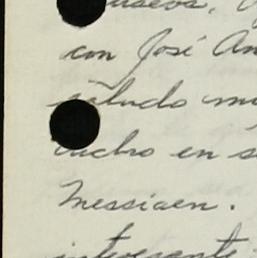 con José An
saludo m
ucho en s
Messiaen.
interesante